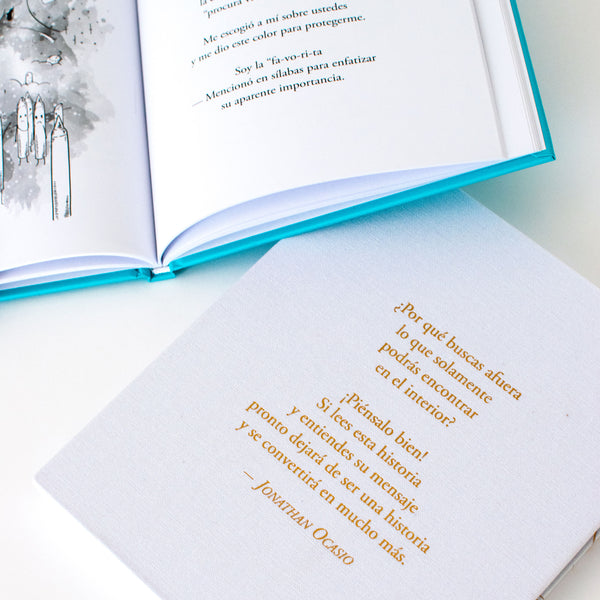 "procura v
Me escogió a mí sobre ustedes
y me dio este color para protegerme.
Soy la "fa-vo-ri-ta
— Mencionó en sílabas para enfatizar
su aparente importancia.
¿Por qué buscas afuera
lo que solamente
podrás encontrar
en el interior?
¡Piénsalo bien!
Si lees esta historia
y entiendes su mensaje
pronto dejará de ser una historia
y se convertirá en mucho más.
— JONATHAN OCASIO